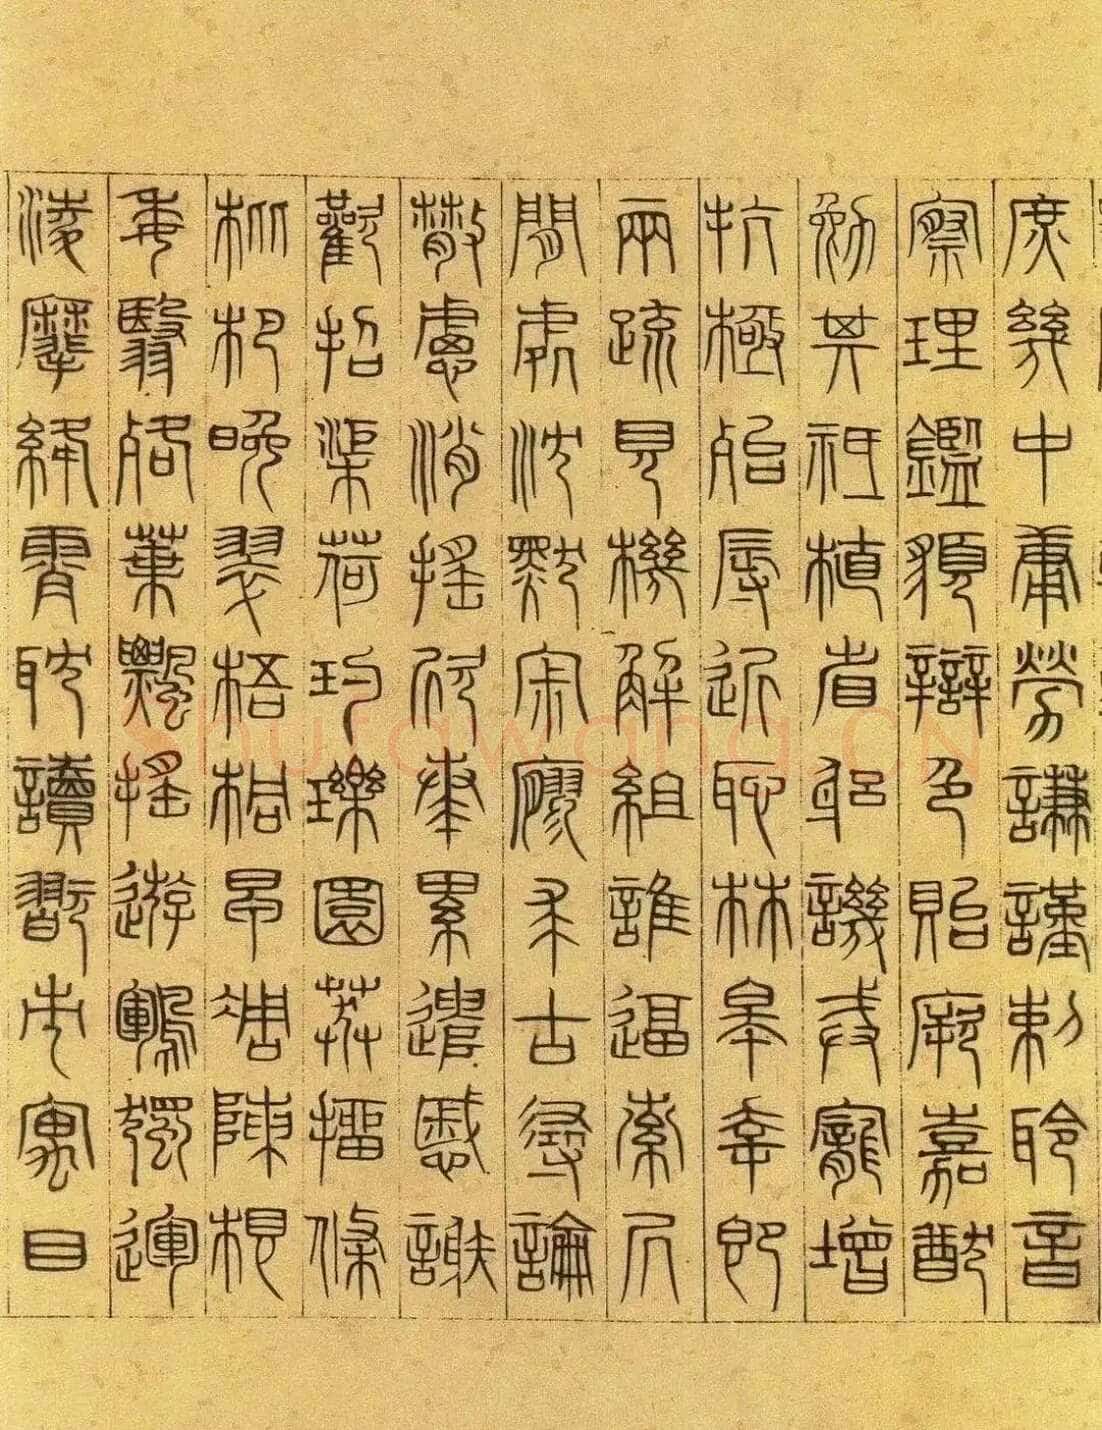 庶幾中庸勞謙謹勅聆音
察理鑑貌辯色貽厥嘉猷
勉其祗植省躬譏戒寵增
抗極殆辱近恥林皋幸即
兩疏見機解組誰逼索居
閒處沈默寂寥求古尋論
散慮消搖欣奏累遣慼謝
歡招渠荷玓瓅園莽㩅條
枇杷晚翠梧桐早凋陳根
委翳落葉飄搖遊鶤獨運
淩摩絳霄耽讀翫市寓目
shufawang.CN